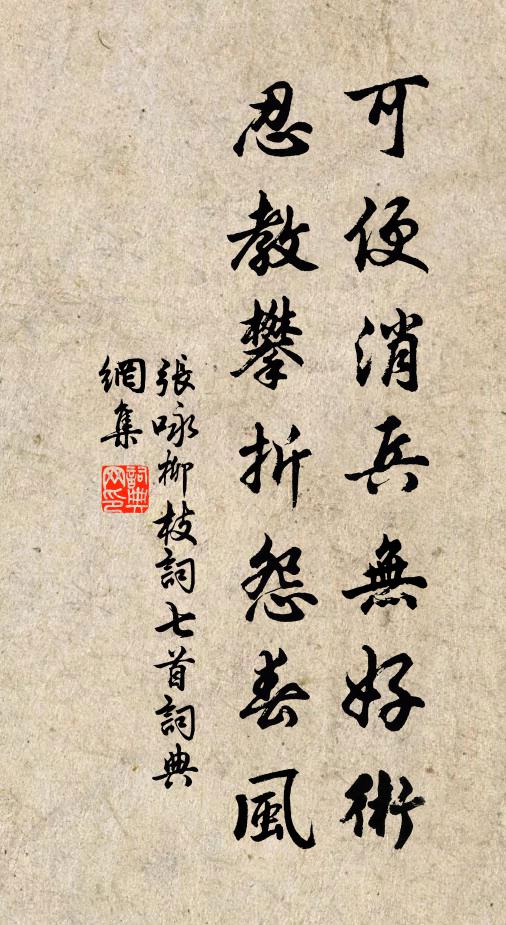 可便消兵無好術
忍教攀折怨春風
張咏柳枝詞七首詞典
網集
詞典
网印